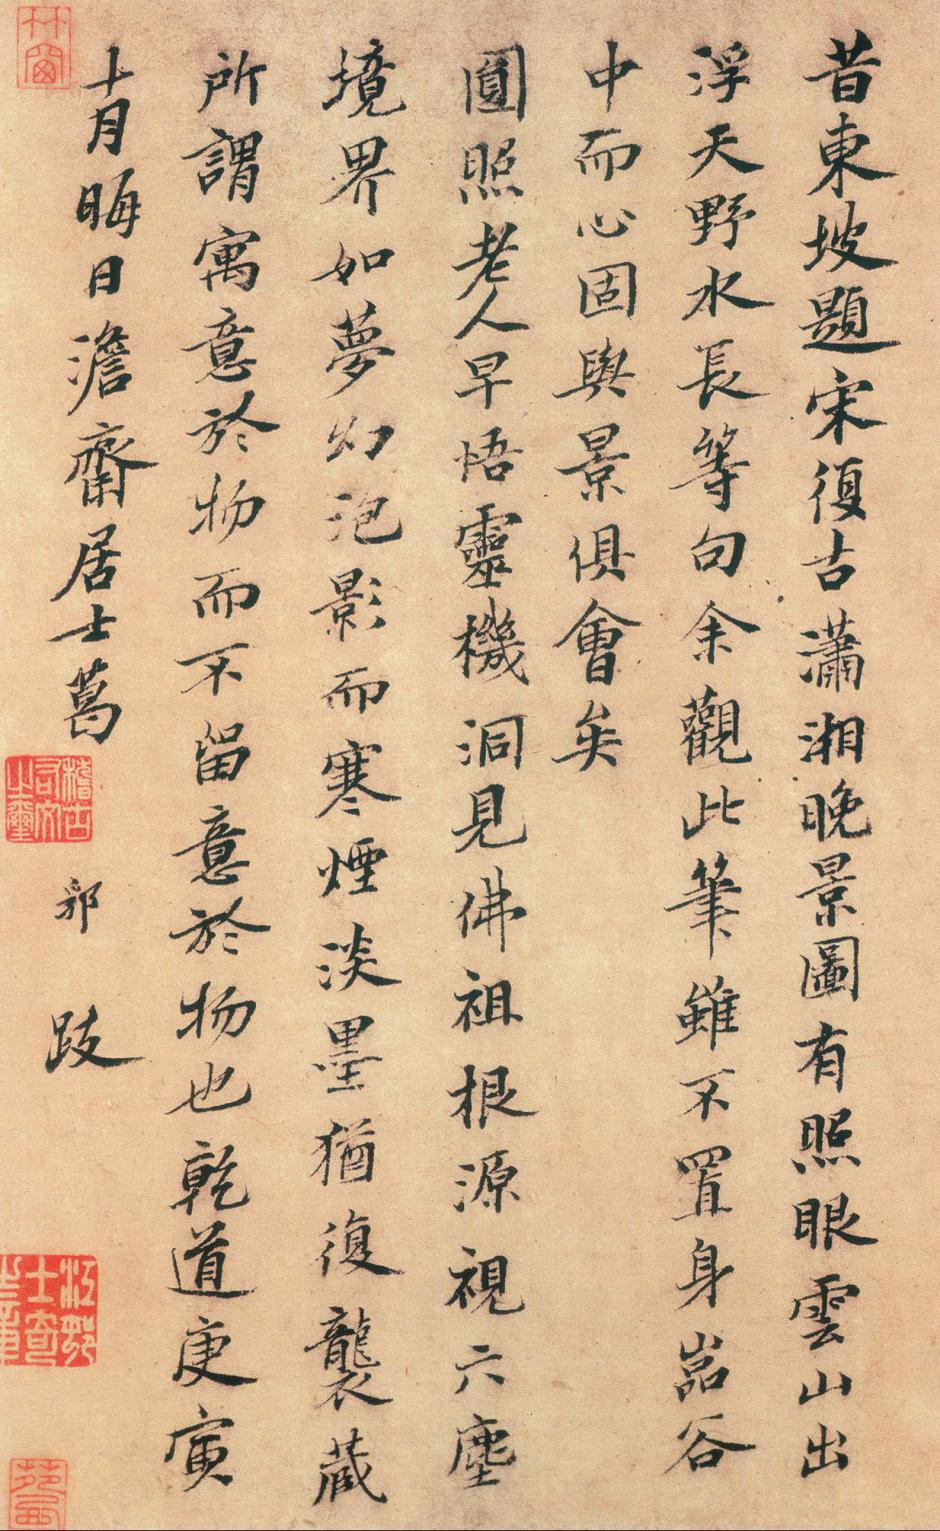 昔東坡題宋復古瀟湘晚景圖有照眼雲山出
浮天野水長等句余觀此筆雖不置身嵓谷
中而心固與景俱會矣
圓照老人早悟靈機洞見佛祖根源視六塵
境界如夢幻泡影而寒煙淡墨猶復襲藏
所謂寓意於物而不留意於物也乾道庚寅
十月晦日澹齋居士葛
郛
跋
竹窗